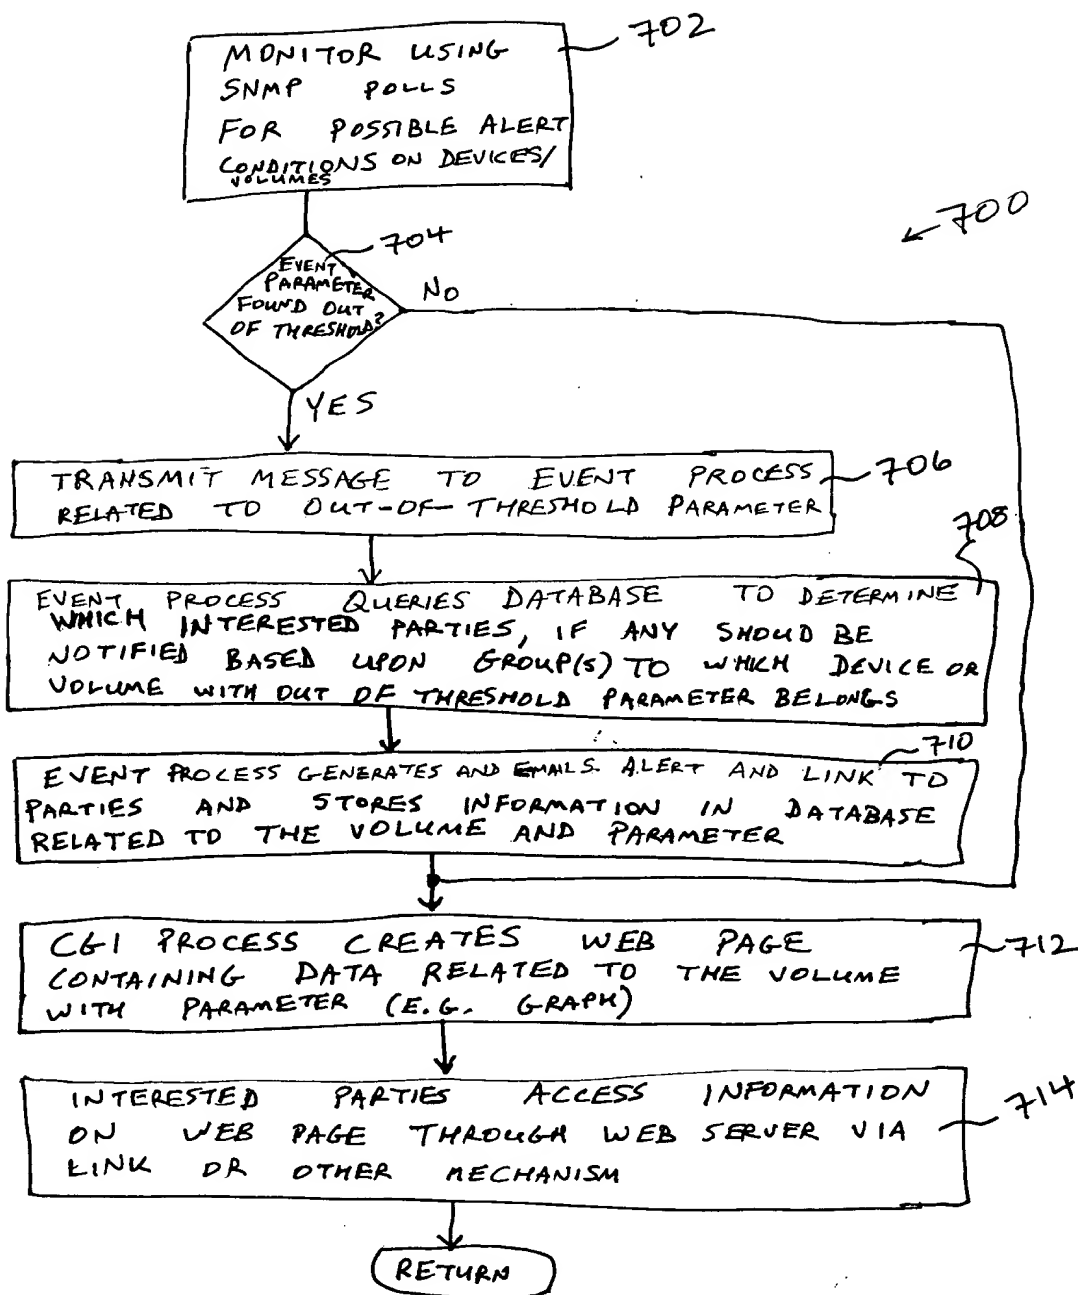 702
MONITOR USING
SNMP POLLS
FOR POSSIBLE ALERT
CONDITIONS ON DEVICES/
VOLUMES
700
704
EVENT
PARAMETER
FOUND OUT
OF THRESHOLD?
NO
YES
TRANSMIT MESSAGE TO EVENT PROCESS
RELATED TO OUT-OF-THRESHOLD PARAMETER
706
708
EVENT PROCESS QUERIES DATABASE TO DETERMINE
WHICH INTERESTED PARTIES, IF ANY SHOULD BE
NOTIFIED BASED UPON GROUP(S) TO WHICH DEVICE OR
VOLUME WITH OUT OF THRESHOLD PARAMETER BELONGS
710
EVENT PROCESS GENERATES AND EMAILS ALERT AND LINK TO
PARTIES AND STORES INFORMATION IN DATABASE
RELATED TO THE VOLUME AND PARAMETER
CGI PROCESS CREATES WEB PAGE
CONTAINING DATA RELATED TO THE VOLUME
WITH PARAMETER (E.G. GRAPH)
712
INTERESTED PARTIES ACCESS INFORMATION
ON WEB PAGE THROUGH WEB SERVER VIA
LINK OR OTHER MECHANISM
714
RETURN